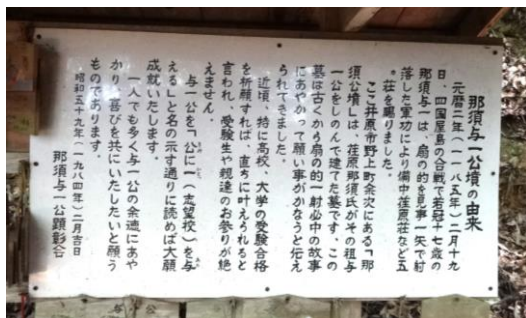 那須与一公墳の由来
元暦二年(一一八五年)二月十九
日、四国屋島の合戦で若冠十七歳の
那須与一は、扇の的を見事一矢で射
落した軍功により備中荏原荘など五
荘を賜りました。
ここ井原市野上町余次にある「那
須公墳」は、荏原那須氏がその祖与
一公をしのんで建てた墓です。この
墓は古くから扇の的一射必中の故事
にあやかって願い事がかなうと伝え
られてきました。
近頃、特に高校、大学の受験合格
を祈願すれば、直ちに叶えられると
言われ、受験生や親達のお参りが絶
えません。
与一公を「公に一(志望校)を与
える」と名の示す通りに読めば大願
成就いたします。
一人でも多く与一公の余徳にあや
かり、喜びを共にいたしたいと願う
ものであります。
昭和五十九年(一九八四年)二月吉日
那須与一公顕彰会